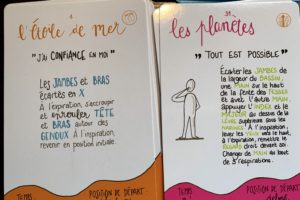 l'étoile de mer
"J'AI CONFIANCE EN MOI"
Les JAMBES et BRAS
écartés en X
À l'inspiration, s'accroupir
et enrouler TÊTE
et BRAS autour des
GENOUX À l'inspiration,
revenir en position initiale.
TEMPS
POSITION DE DÉPART
les planètes
"TOUT EST POSSIBLE"
Écarter les JAMBES de la
largeur du BASSIN,
une MAIN sur le haut
de la fente des FESSES
et avec l'autre MAIN,
appuyer l'INDEX et le
MAJEUR au dessus de
la LÈVRE supérieure sous les
NARINES À l'inspiration,
lever les YEUX vers le
à l'expiration, remettre le
REGARD droit devant soi
Changer de MAIN au bout
de 3 respirations.
TEMPS
POSITION DE DÉPART